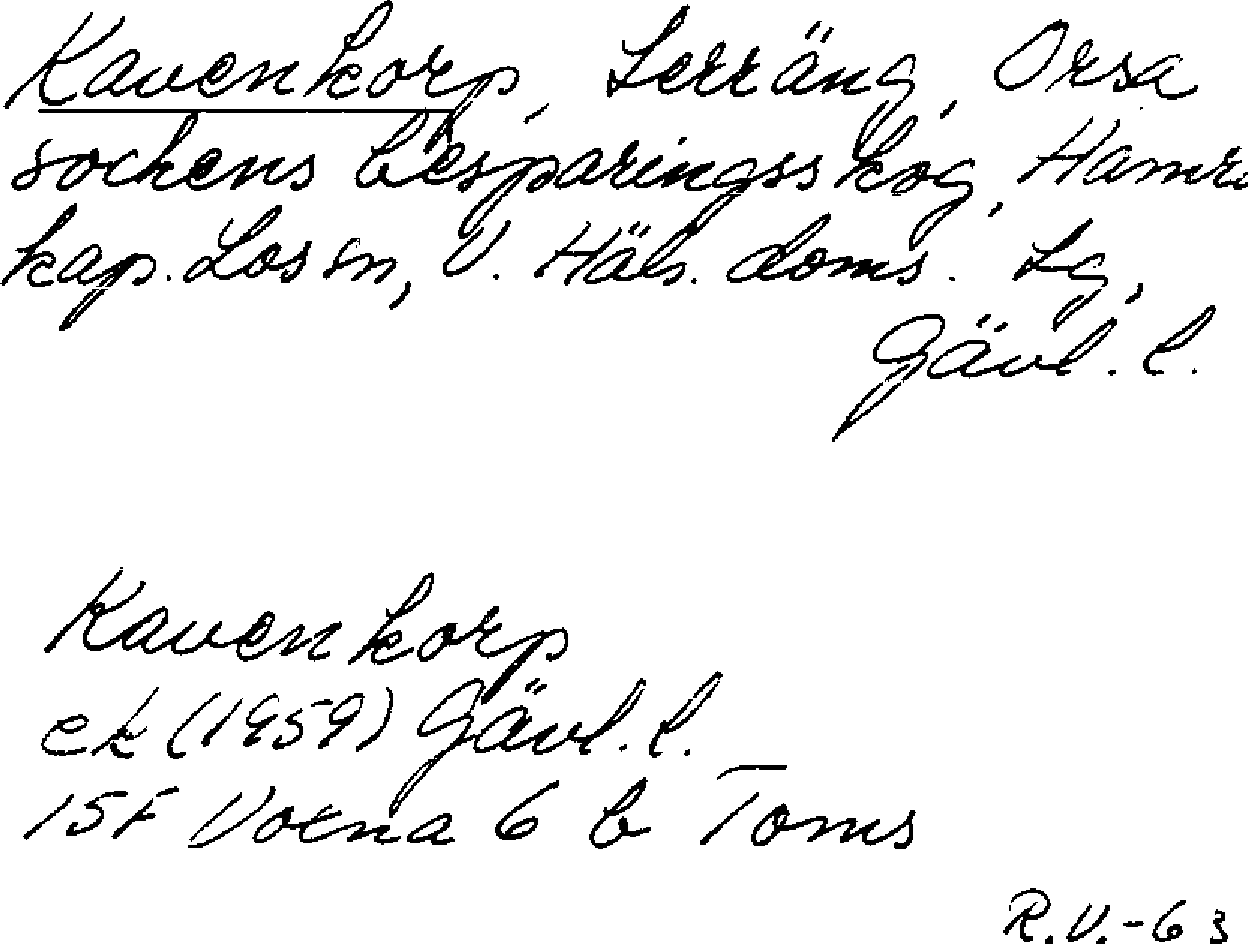 Kavenkorp, Terräng, Orsa
sockens besparingsskog, Hamra
kap. Los sn, V. Häls. doms. Lg,
Gävl. l.
Kavenkorp
ek (1959) Gävl. l.
15F Voxna 6 b Toms
R.V.-63